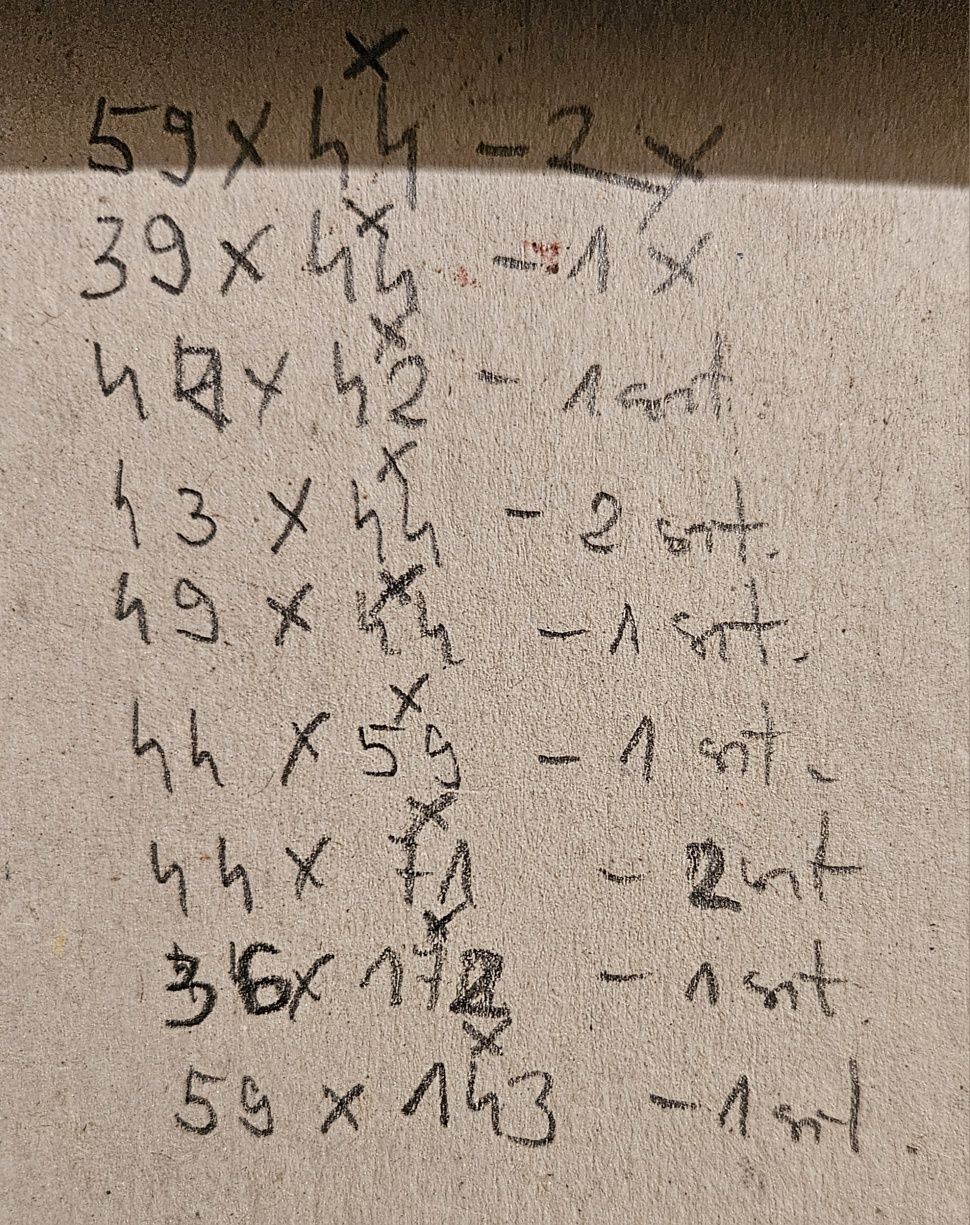 x
59 x 44 - 2 x
x
39 x 44 - 1 x
x
44 x 42 - 1 szt
x
43 x 44 - 2 szt.
x
49 x 44 - 1 szt.
x
44 x 59 - 1 szt.
x
44 x 71 - 2 szt
x
36 x 172 - 1 szt
x
59 x 143 - 1 szt.